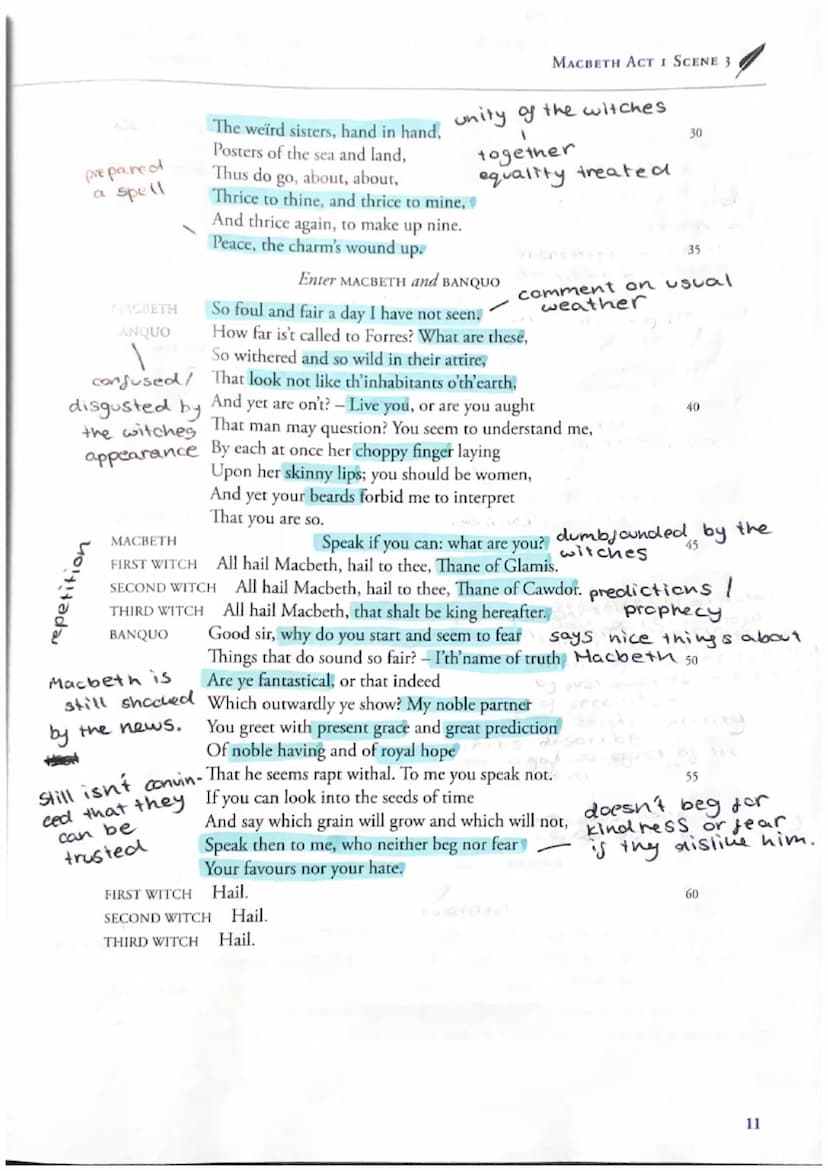 MACBETH ACT 1 SCENE 3
The weïrd sisters, hand in hand,
unity of the witches
30
Posters of the sea and land,
together
Thus do go, about, about,
equality treated
prepared
a spell
Thrice to thine, and thrice to mine,
And thrice again, to make up nine.
Peace, the charm's wound up.
35
Enter MACBETH and BANQUO
comment on usual
weather
MACBETH So foul and fair a day I have not seen.
BANQUO How far is't called to Forres? What are these,
So withered and so wild in their attire,
confused/
disgusted by
the witches
appearance
That look not like th'inhabitants o'th'earth,
And yet are on't? – Live you, or are you aught
40
That man may question? You seem to understand me,
By each at once her choppy finger laying
Upon her skinny lips; you should be women,
And yet your beards forbid me to interpret
That you are so.
MACBETH Speak if you can: what are you?
dumbfounded by the
witches
45
repetition
FIRST WITCH All hail Macbeth, hail to thee, Thane of Glamis.
SECOND WITCH All hail Macbeth, hail to thee, Thane of Cawdor.
predictions /
prophecy
THIRD WITCH All hail Macbeth, that shalt be king hereafter.
BANQUO Good sir, why do you start and seem to fear
says nice things about
Macbeth
Things that do sound so fair? – I'th'name of truth
50
Macbeth is
still shocked
by the news.
Are ye fantastical, or that indeed
Which outwardly ye show? My noble partner
You greet with present grace and great prediction
Of noble having and of royal hope
still isn't convin-
ced that they
can be
trusted
That he seems rapt withal. To me you speak not.
55
If you can look into the seeds of time
And say which grain will grow and which will not,
doesn't beg for
kindness or fear
if thy dislike him.
Speak then to me, who neither beg nor fear
Your favours nor your hate.
FIRST WITCH Hail.
60
SECOND WITCH Hail.
THIRD WITCH Hail.
11